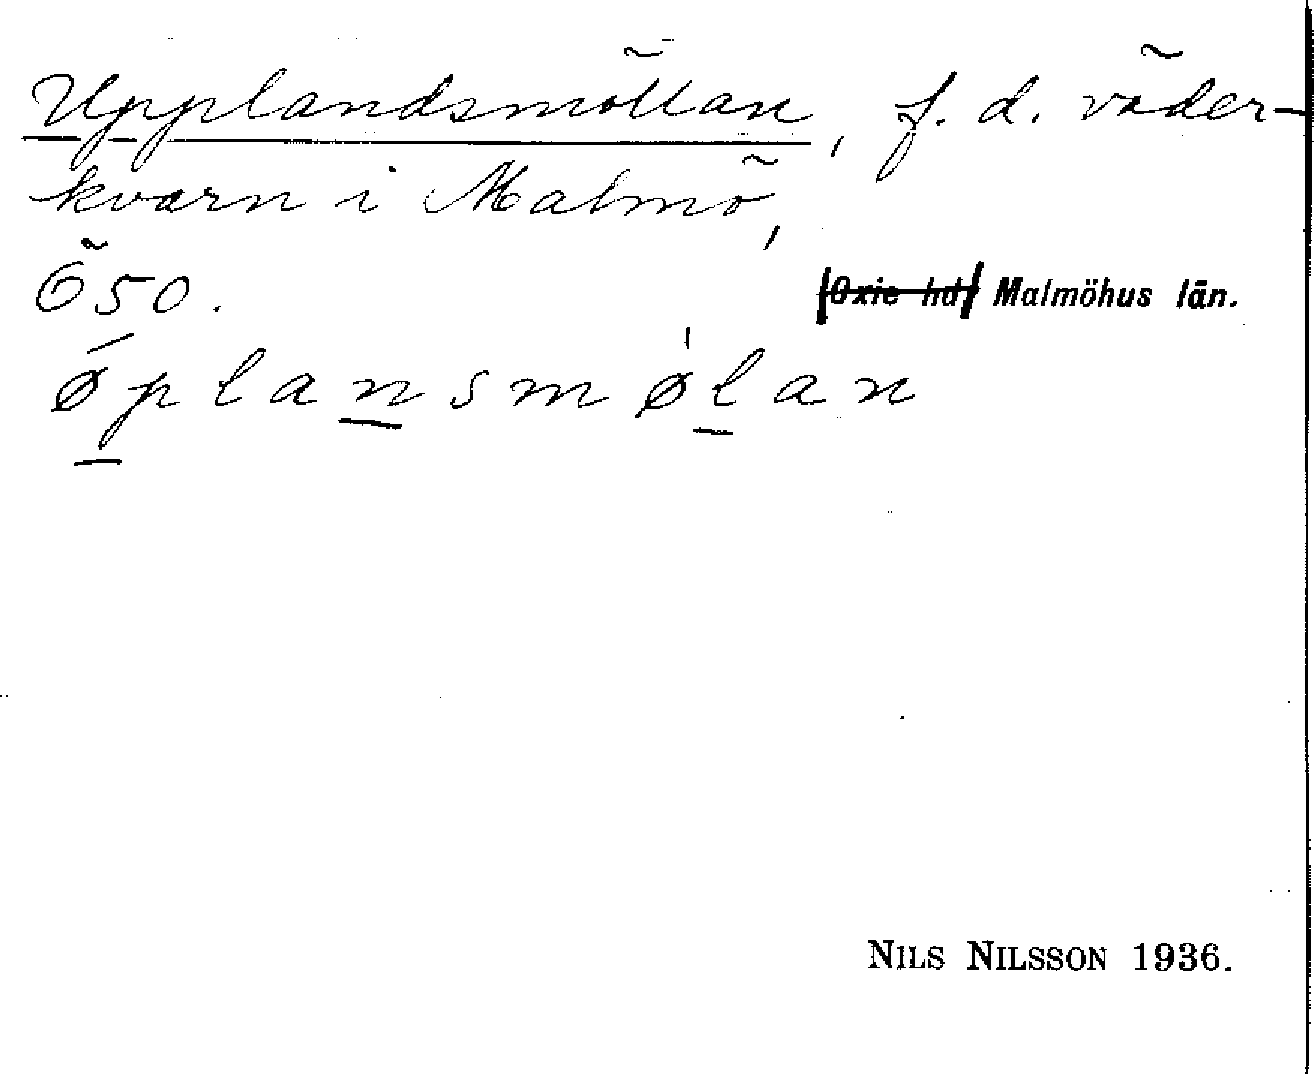 Upplandsmöllan, f. d. väder-
kvarn i Malmö,
Ö 50.
[Oxie hd] Malmöhus län.
ǿplansmø̍lan
NILS NILSSON 1936.